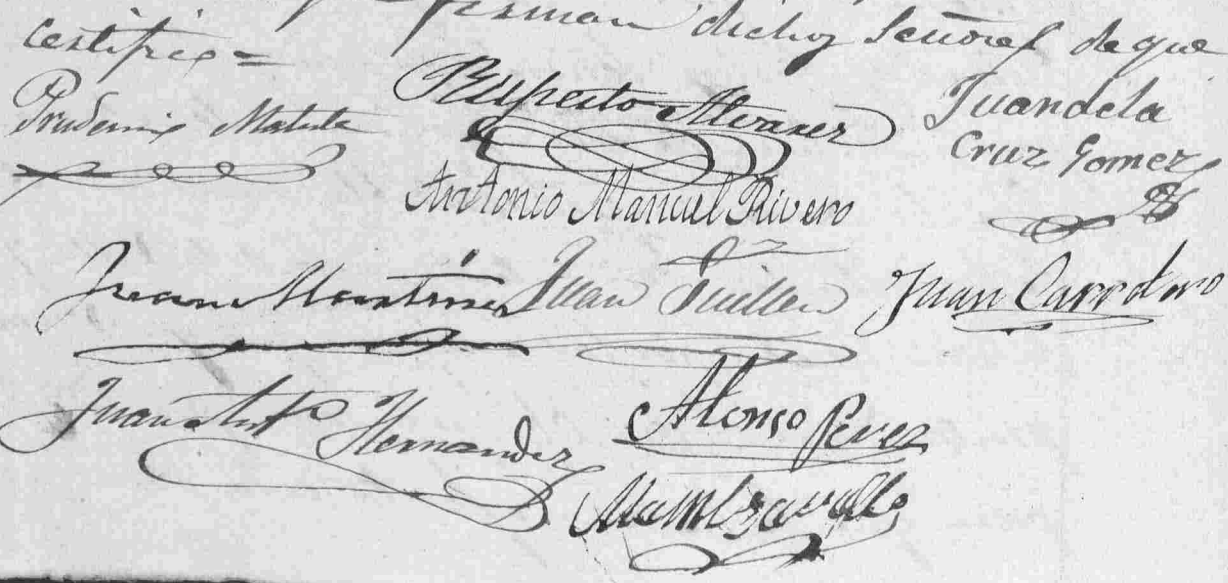 firman dichos Señores de que
certifico =
Prudencio Matute
Ruperto Alvarez
Juan de la
Cruz Gomez
Antonio Manuel Rivero
Juan Martinez
Juan Guillen
Juan Carretero
Juan Antº Hernandez
Alonso Perez
Manl